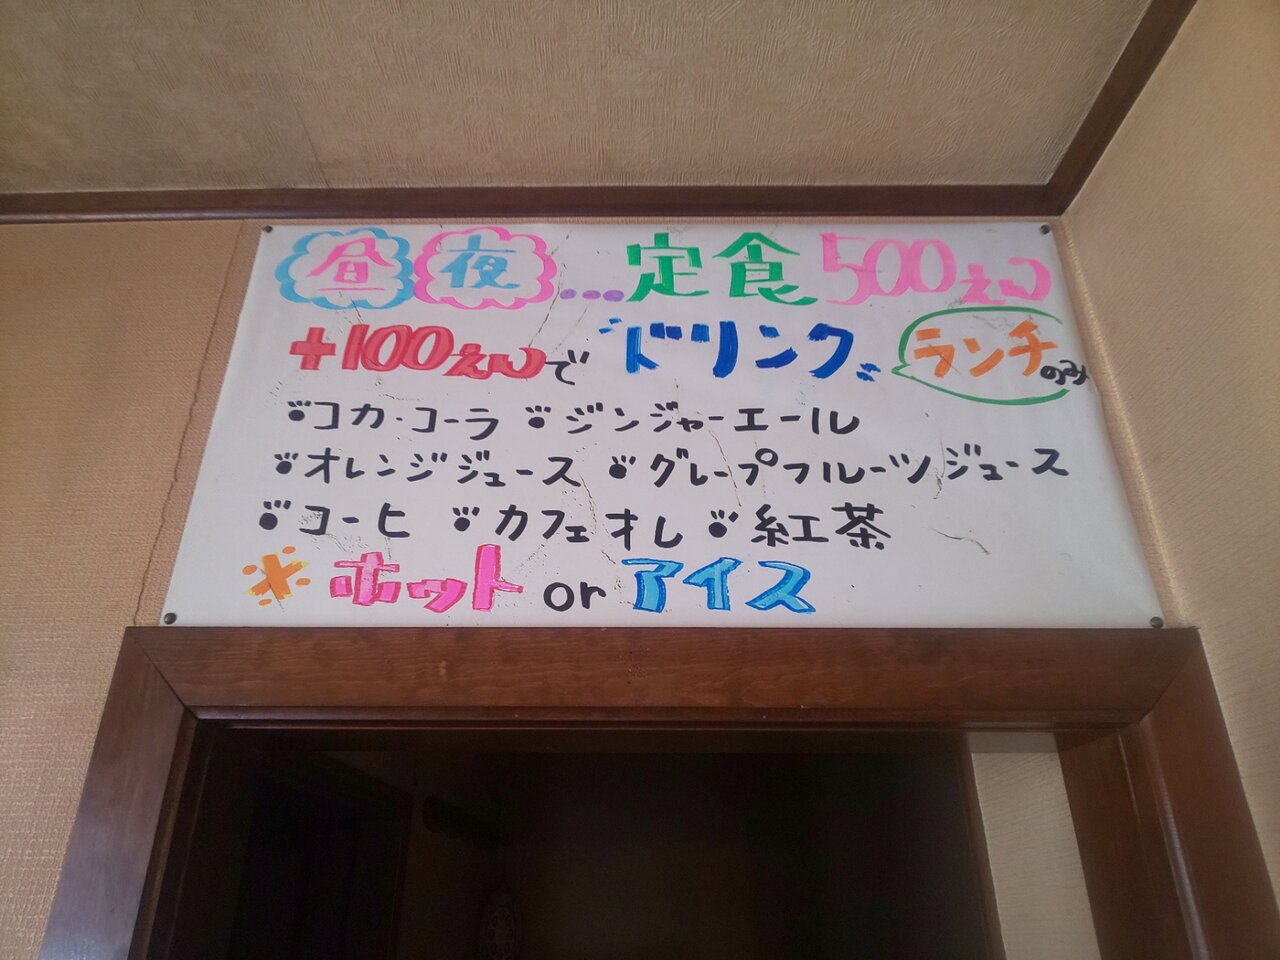 昼 夜 ...定食 500えん
+100えんで "ドリンク" ランチのみ
コカ・コーラ ジンジャーエール
オレンジジュース グレープフルーツジュース
コーヒ カフェオレ 紅茶
※ホット or アイス